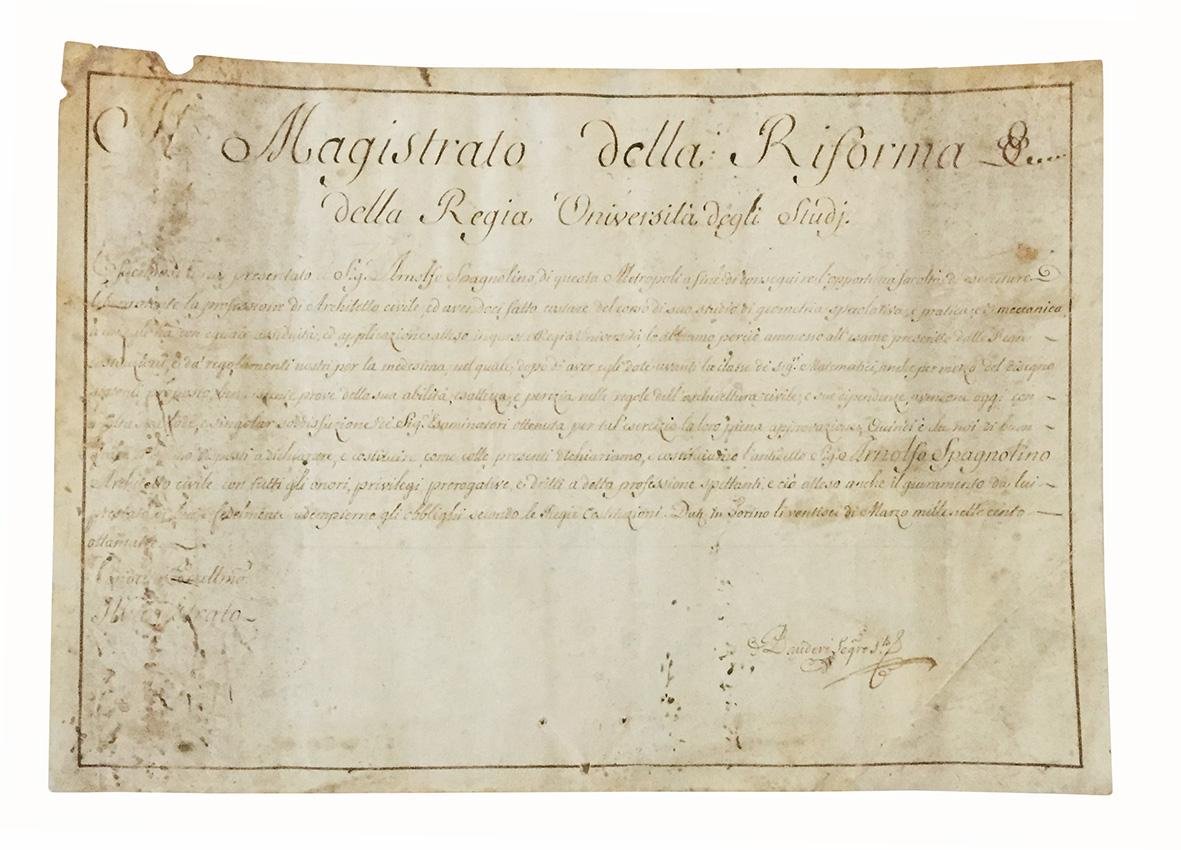 Il Magistrato della Riforma &....
della Regia Università degli Studj.
presentato il Sig.r Arnolfo Spagnolino di questa Metropoli a fine di conseguire l'opportuna facoltà di esercitare
la professione di Architetto civile, ed avendoci fatto constare del corso di suo studio di geometria speculativa, e pratica, e di meccanica
con eguale assiduità, ed applicazione atteso in questa Regia Università, lo abbiamo perciò ammesso all'esame prescritto dalle Regie
Costituzioni, e da' regolamenti nostri per la medesima, nel quale, dopo di aver egli date avanti la classe de' Sig.ri Matematici, anche per mezzo del disegno
prove della sua abilità, esattezza, e perizia nelle regole dell'architettura civile, e sue dipendenze, avendone oggi con
lode, e singolar soddisfazione de' Sig.ri Esaminatori ottenuta per tal' esercizio la loro piena approvazione; Quindi è che noi di buon
disposti a dichiarare, e costituire come colle presenti dichiariamo, e costituiamo l'antidetto Sig.r Arnolfo Spagnolino
Architetto civile con tutti gli onori, privilegi, prerogative, e dritti a detta professione spettanti, e ciò atteso anche il giuramento da lui
prestato di bene, e fedelmente adempierne gli obblighi secondo le Regie Costituzioni. Dat. in Torino li ventisei di Marzo mille sette cento
ottanta
Eccellmo
Magistrato